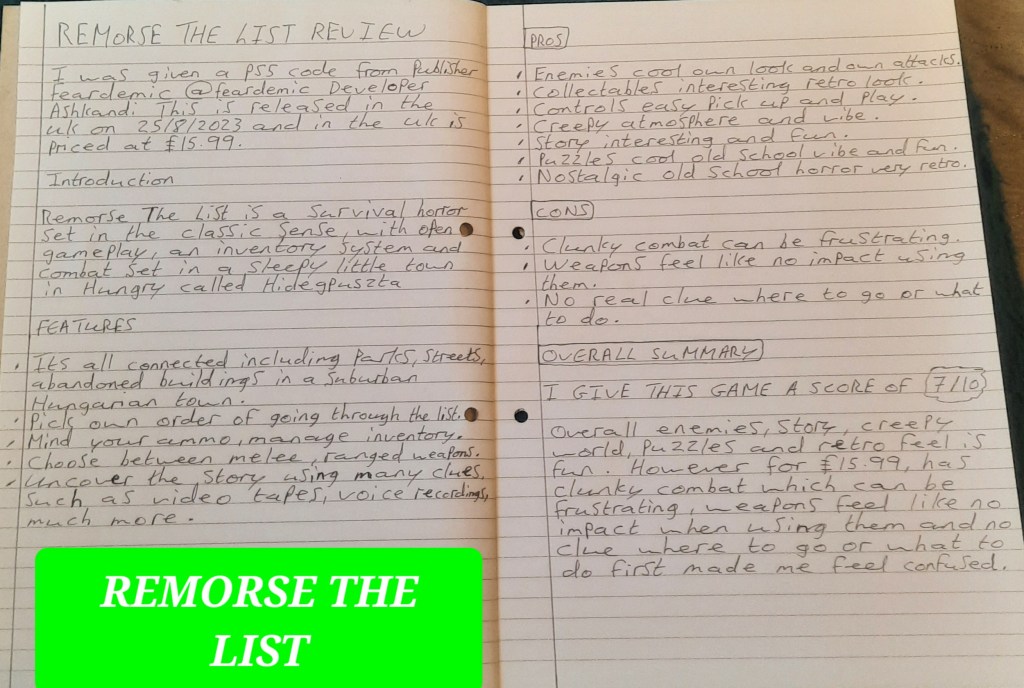 REMORSE THE LIST REVIEW
I was given a PS5 code from Publisher
feardemic @feardemic Developer
Ashkandi. This is released in the
uk on 25/8/2023 and in the uk is
priced at £15.99.
Introduction
Remorse The List is a survival horror
set in the classic sense, with open
gameplay, an inventory system and
combat set in a sleepy little town
in Hungry called Hidegpuszta
FEATURES
• Its all connected including Parks, Streets,
abandoned buildings in a suburban
Hungarian town.
• Pick own order of going through the list.
• Mind your ammo, manage inventory.
• Choose between melee, ranged weapons.
• Uncover the story using many clues.
Such as video tapes, voice recordings,
much more.
REMORSE THE
LIST
PROS
• Enemies cool own look and own attacks.
• Collectables interesting retro look.
• Controls easy pick up and play.
• Creepy atmosphere and vibe.
• Story interesting and fun.
• Puzzles cool old school vibe and fun.
• Nostalgic old school horror very retro.
CONS
• Clunky combat can be frustrating.
• Weapons feel like no impact using
them.
• No real clue where to go or what
to do.
OVERALL SUMMARY
I GIVE THIS GAME A SCORE OF 7/10
Overall enemies, story, creepy
world, puzzles and retro feel is
fun. However for £15.99, has
clunky combat which can be
frustrating, weapons feel like no
impact when using them and no
clue where to go or what to
do first made me feel confused.